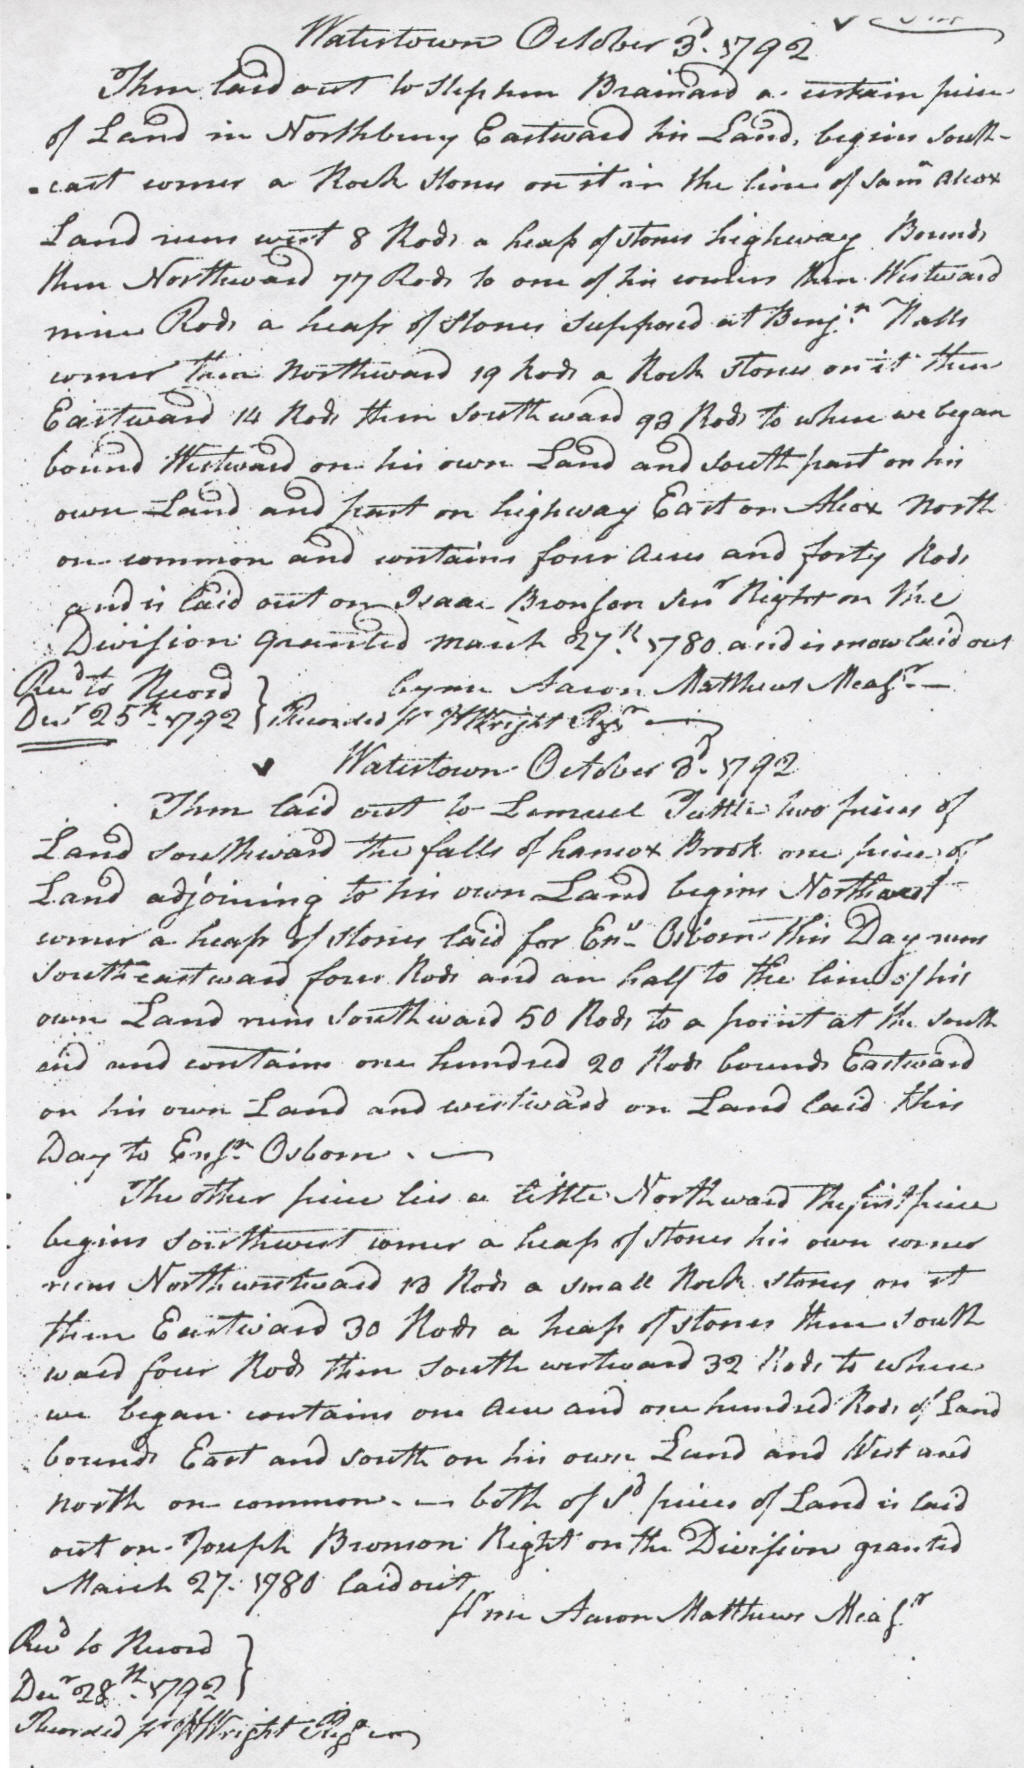 Watertown October 3d. 1792
Then laid out to Stephen Brainard a certain piece
of Land in Northbury Eastward his Land, begins South-
east corner a Rock Stones on it in the line of Samll Alcox
Land runs west 8 Rods a heap of stones highway Bounds
then Northward 77 Rods to one of his corners then Westward
nine Rods a heap of Stones supposed at Benjn. Halls
corner then Northward 19 Rods a Rock Stones on it then
Eastward 14 Rods then Southward 93 Rods to where we began
bound Westward on his own Land and South part on his
own Land and part on highway East on Alcox North
on common and contains four Acres and forty Rods
and is laid out on Isaac Bronson Senr Right on the
Division granted March 27th. 1780 and is now laid out
by me Aaron Matthews Measr.
Recd to Record
Decr 25th. 1792 } Recorded pr W Wright Regr
Watertown October 3d. 1792
Then laid out to Lemuel Tuttle two pieces of
Land Southward the falls of hancox Brook one piece of
Land adjoining to his own Land begins Northwest
corner a heap of Stones laid for Ens. Osborn this Day runs
South eastward four Rods and an half to the line of his
own Land runs Southward 50 Rods to a point at the South
end and contains one hundred 20 Rods bounds Eastward
on his own Land and westward on Land laid this
Day to Ensn. Osborn.
The other piece lies a little Northward the first piece
begins Southwest corner a heap of Stones his own corner
runs Northwestward 13 Rods a small Rock stones on it
then Eastward 30 Rods a heap of stones then South
ward four Rods then South westward 32 Rods to where
we began contains one Acre and one hundred Rods of Land
bounds East and South on his own Land and West and
North on common - both of Sd pieces of Land is laid
out on Joseph Bronson Right on the Division granted
March 27. 1780 laid out
pr me Aaron Matthews Measr
Recd to Record
Decr 28th. 1792 }
Recorded pr W Wright Regr